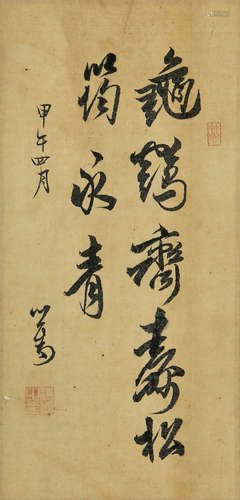 龜鶴齊壽松
筠永青
甲午四月
心畬